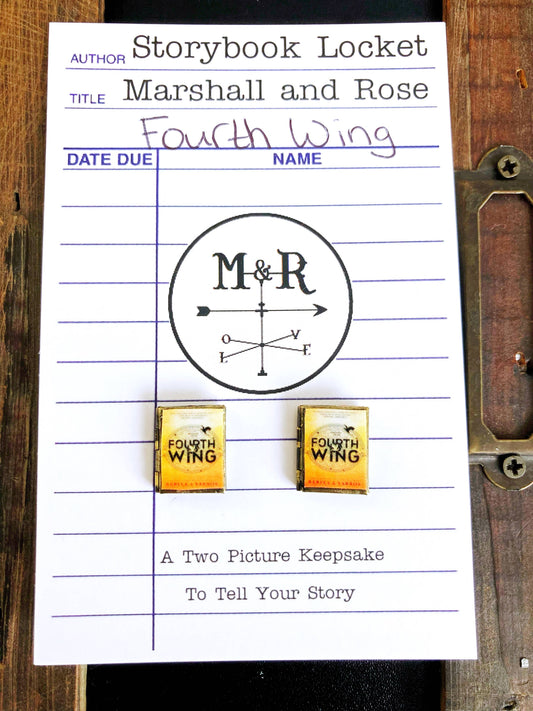 AUTHOR Storybook Locket
TITLE Marshall and Rose
Fourth Wing
DATE DUE NAME
M&R
L O V E
FOURTH WING
REBECCA YARROS
FOURTH WING
REBECCA YARROS
A Two Picture Keepsake
To Tell Your Story